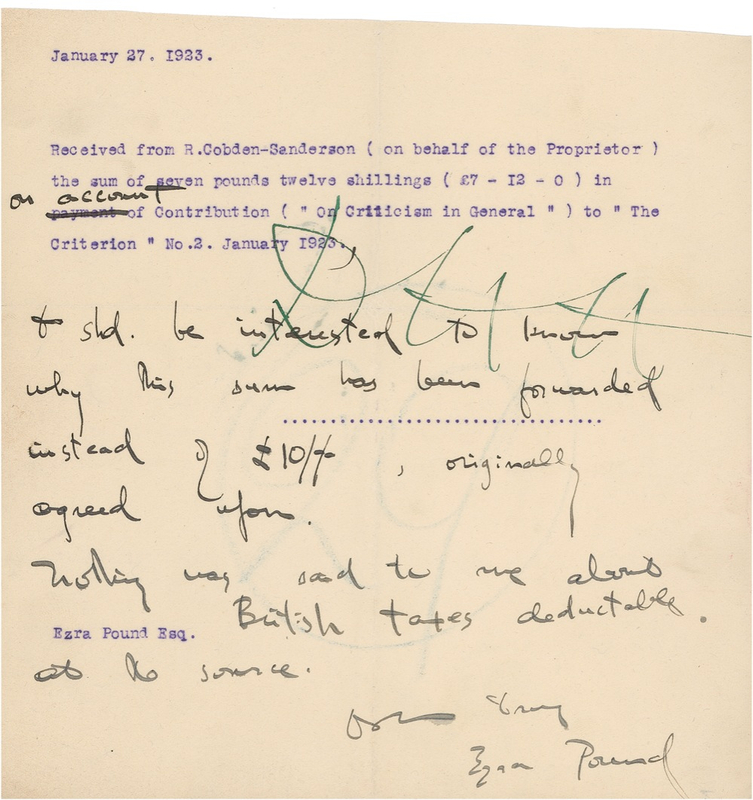 January 27. 1923.
Received from R.Cobden-Sanderson ( on behalf of the Proprietor )
the sum of seven pounds twelve shillings ( £7 - I2 - 0 ) in
on account
payment of Contribution ( " On Criticism in General " ) to " The
Criterion " No.2. January 1923.,
& shd. be interested to know
why this sum has been forwarded
instead of £10/ , originally
agreed upon.
Nothing was said to me about
British taxes deductable.
Ezra Pound Esq.
at the source.
yrs truly
Ezra Pound